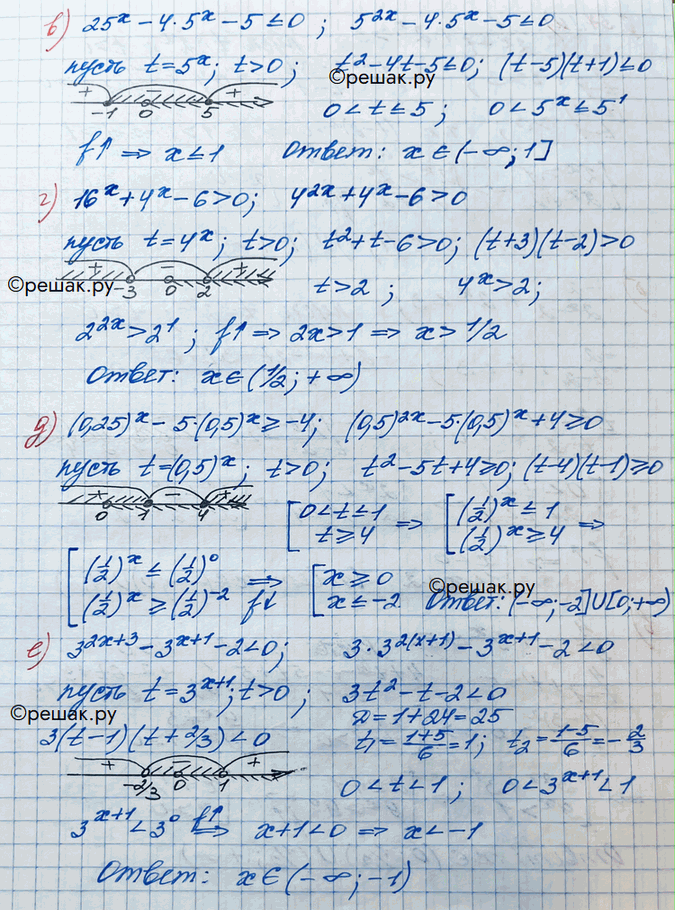 в) 25ˣ − 4·5ˣ − 5 ≤ 0 ; 5²ˣ − 4·5ˣ − 5 ≤ 0
пусть t = 5ˣ ; t > 0 ; t² − 4t − 5 ≤ 0 ; (t−5)(t+1) ≤ 0
©решак.ру
+ − +
−1 0 5 0 < t ≤ 5 ; 0 < 5ˣ ≤ 5¹
f↑ ⇒ x ≤ 1 Ответ: x ∈ (−∞; 1]
г) 16ˣ + 4ˣ − 6 > 0 ; 4²ˣ + 4ˣ − 6 > 0
пусть t = 4ˣ ; t > 0 ; t² + t − 6 > 0 ; (t+3)(t−2) > 0
+ − +
©решак.ру −3 0 2 t > 2 ; 4ˣ > 2 ;
2²ˣ > 2¹ ; f↑ ⇒ 2x > 1 ⇒ x > 1/2
Ответ: x ∈ (1/2; +∞)
д) (0,25)ˣ − 5·(0,5)ˣ ≥ −4 ; (0,5)²ˣ − 5·(0,5)ˣ + 4 ≥ 0
пусть t = (0,5)ˣ ; t > 0 ; t² − 5t + 4 ≥ 0 ; (t−4)(t−1) ≥ 0
+ − +
0 1 4 [ 0 < t ≤ 1 ⇒ [ (1/2)ˣ ≤ 1
t ≥ 4 (1/2)ˣ ≥ 4 ⇒
[ (1/2)ˣ ≤ (1/2)⁰ ⇒ [ x ≥ 0 ©решак.ру
(1/2)ˣ ≥ (1/2)⁻² f↓ x ≤ −2 Ответ: (−∞; −2]∪[0; +∞)
е) 3²ˣ⁺³ − 3ˣ⁺¹ − 2 < 0 ; 3·3²⁽ˣ⁺¹⁾ − 3ˣ⁺¹ − 2 < 0
пусть t = 3ˣ⁺¹ ; t > 0 ; 3t² − t − 2 < 0
©решак.ру Д = 1 + 24 = 25
3(t−1)(t + 2/3) < 0 t₁ = (1+5)/6 = 1 ; t₂ = (1−5)/6 = −2/3
+ − +
−2/3 0 1 0 < t < 1 ; 0 < 3ˣ⁺¹ < 1
3ˣ⁺¹ < 3⁰ f↑ ⇒ x+1 < 0 ⇒ x < −1
Ответ: x ∈ (−∞; −1)